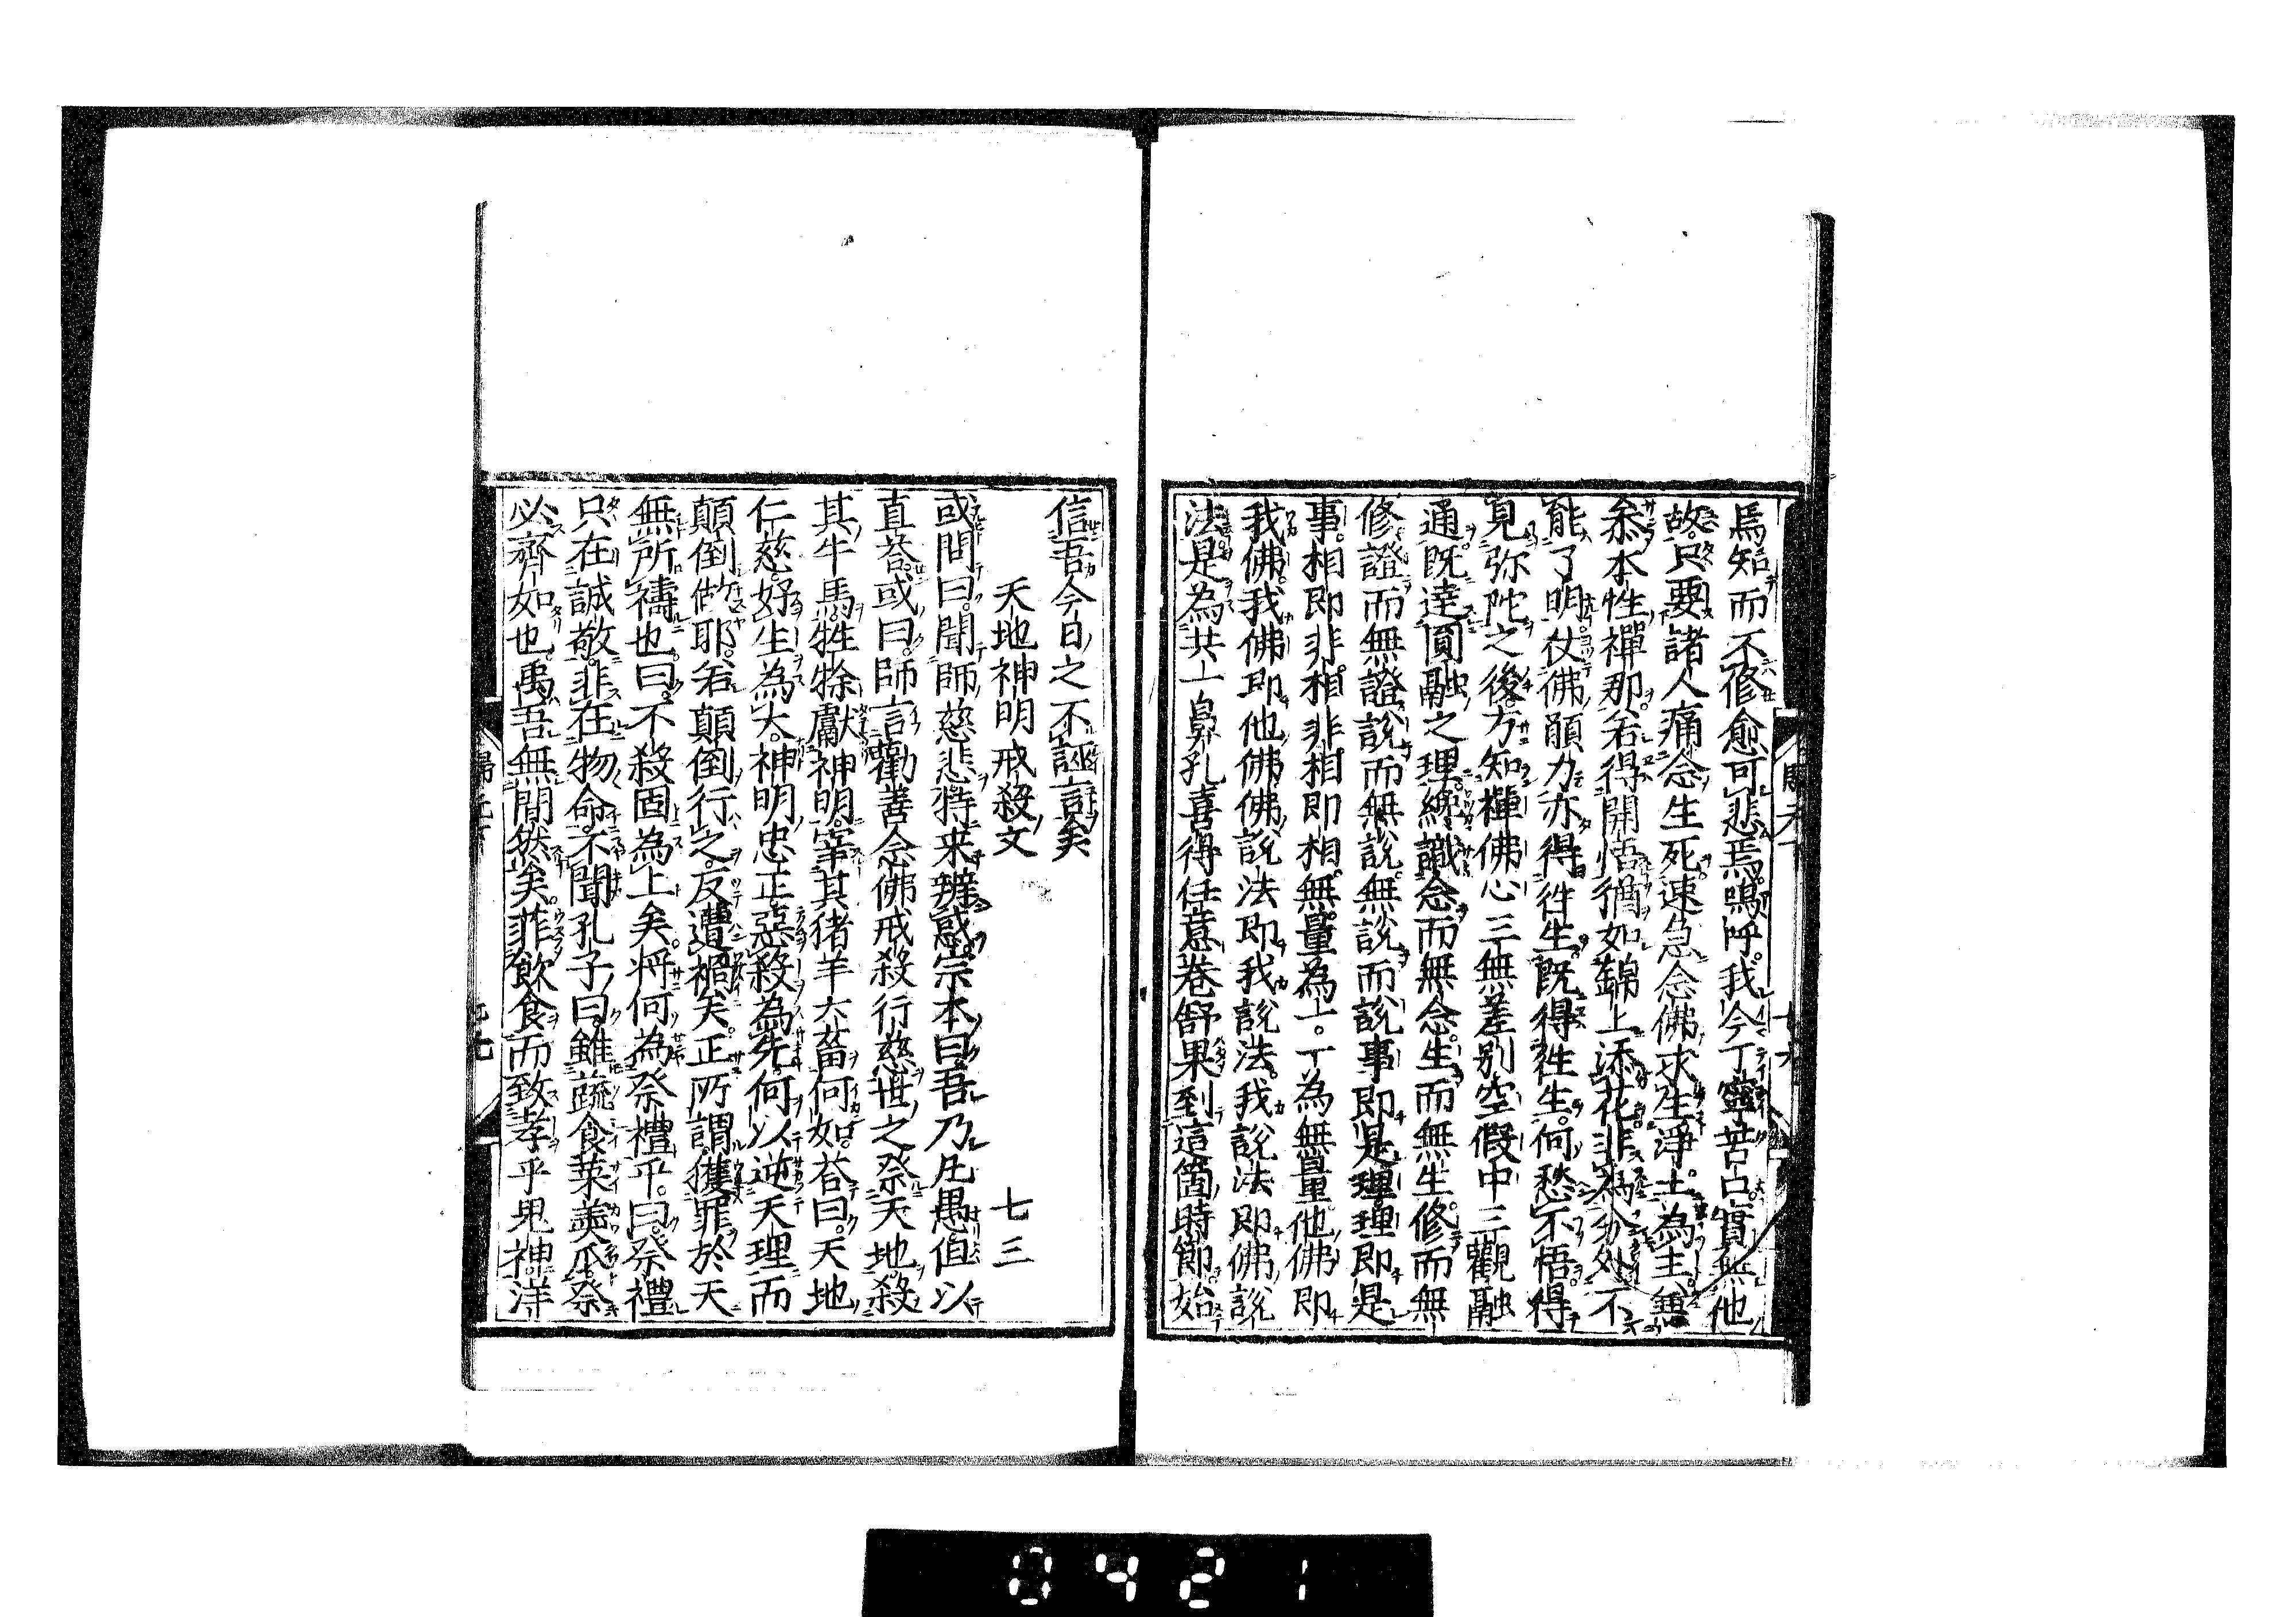 焉知而不修愈可悲焉嗚呼我今丁寧苦口實無他
故只要諸人痛念生死速急念佛求生淨土為主無
叅本性禪那若得開悟猶如錦上添花非為分外不
能了明仗佛願力亦得徃生既得徃生何愁不悟得
見弥陀之後方知禪佛心三無差別空假中三觀融
通既達圓融之理纔識念而無念生而無生修而無
修證而無證說而無說無說而說事即是理理即是
事相即非相非相即相無量為一一為無量他佛即
我佛我佛即他佛佛說法即我說法我說法即佛說
法是為共一鼻孔喜得任意卷舒果到這箇時節始
信吾今日之不誣言矣
天地神明戒殺文 七三
或問曰聞師慈悲特来辨惑宗本曰吾乃凡愚但以
直荅或曰師言勸善念佛戒殺行慈世之祭天地殺
其牛馬牲犧獻神明宰其猪羊六畜何如荅曰天地
仁慈好生為大神明忠正惡殺為先何以逆天理而
顛倒做耶若顛倒行之反遭禍矣正所謂獲罪於天
無所禱也曰不殺固為上矣将何為祭禮乎曰祭禮
只在誠敬非在物命不聞孔子曰雖蔬食菜羹瓜祭
必齊如也禹吾無間然矣菲飲食而致孝乎鬼神洋
0421